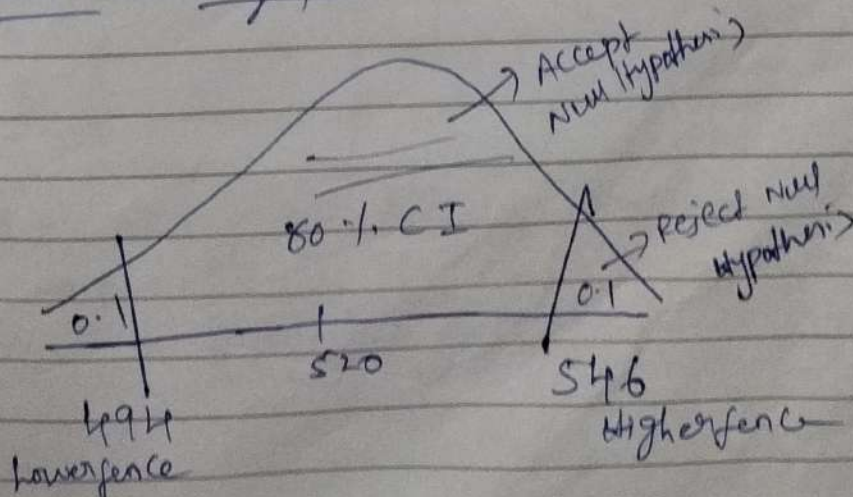 Accept
Null Hypothesis
80 % CI
Reject Null
Hypothesis
0.1
0.1
520
494
546
Lowerfence
Higherfence